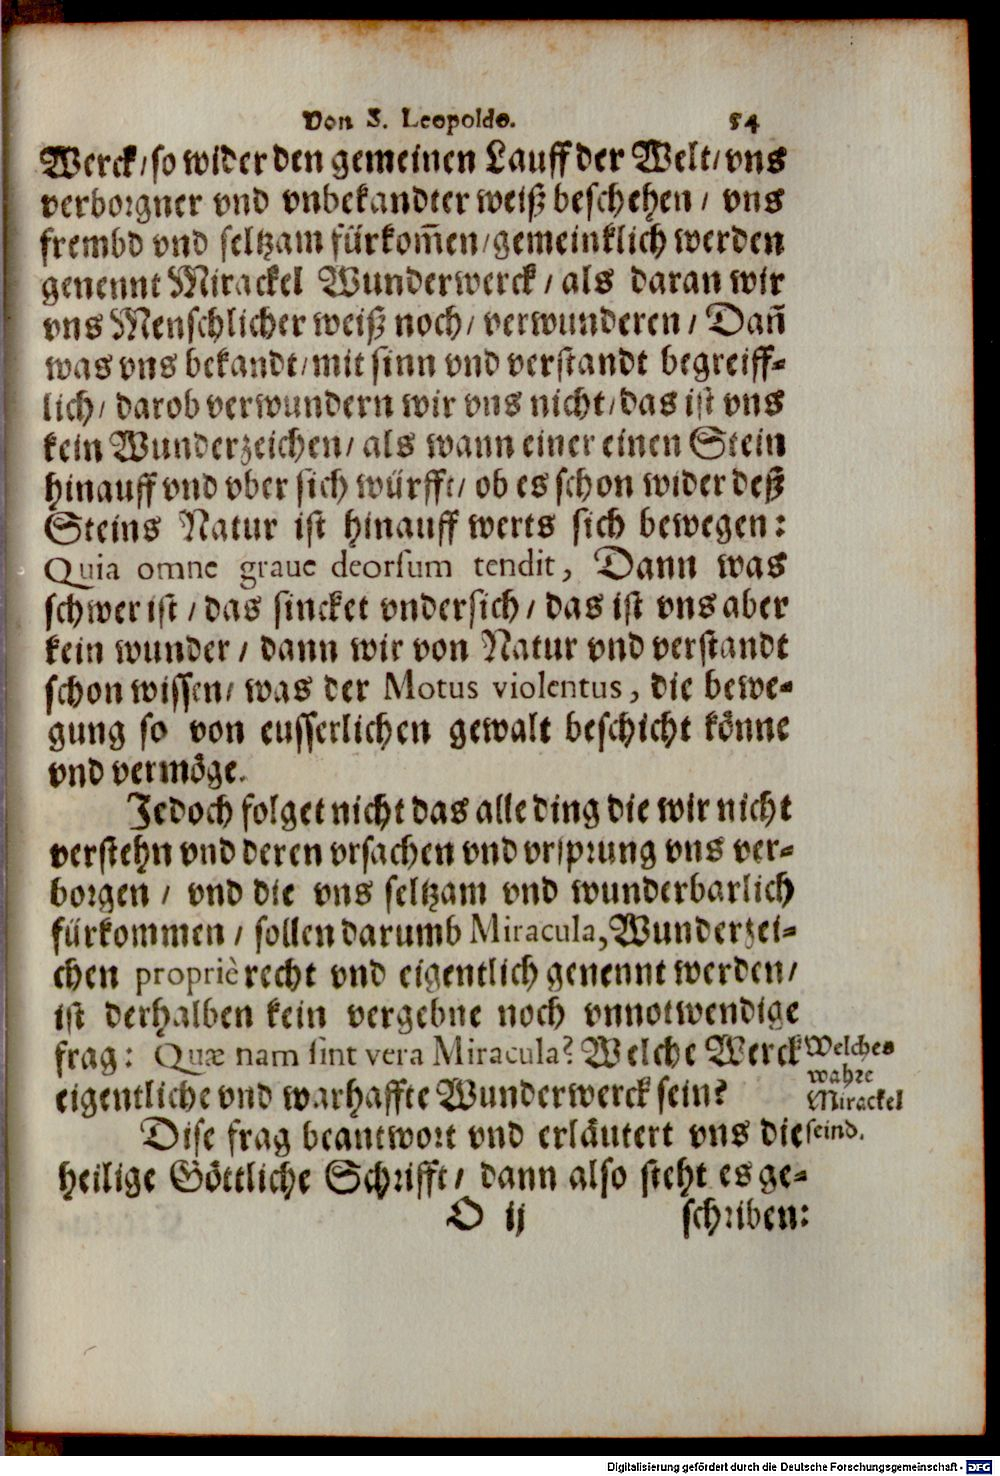 Von S. Leopoldo. 54
Werck/ so wider den gemeinen Lauff der Welt/ vns
verborgner vnd vnbekandter weiß beschehen / vns
frembd vnd seltzam fürkom̃en/ gemeinklich werden
genennt Mirackel Wunderwerck / als daran wir
vns Menschlicher weiß noch/ verwunderen / Dañ
was vns bekandt/ mit sinn vnd verstandt begreiff-
lich/ darob verwundern wir vns nicht/ das ist vns
kein Wunderzeichen/ als wann einer einen Stein
hinauff vnd vber sich würfft/ ob es schon wider deß
Steins Natur ist hinauff werts sich bewegen:
Quia omne graue deorsum tendit, Dann was
schwer ist / das sincket vndersich / das ist vns aber
kein wunder / dann wir von Natur vnd verstandt
schon wissen/ was der Motus violentus, die bewe-
gung so von eusserlichen gewalt beschicht könne
vnd vermöge.
Jedoch folget nicht das alle ding die wir nicht
verstehn vnd deren vrsachen vnd vrsprung vns ver-
borgen / vnd die vns seltzam vnd wunderbarlich
fürkommen / sollen darumb Miracula, Wunderzei-
chen propriè recht vnd eigentlich genennt werden/
ist derhalben kein vergebne noch vnnotwendige
frag: Quæ nam sint vera Miracula? Welche Werck
eigentliche vnd warhaffte Wunderwerck sein?
Welches
wahre
Mirackel
seind.
Dise frag beantwort vnd erläutert vns die
heilige Göttliche Schrifft/ dann also steht es ge-
O ij schriben:
Digitalisierung gefördert durch die Deutsche Forschungsgemeinschaft - DFG